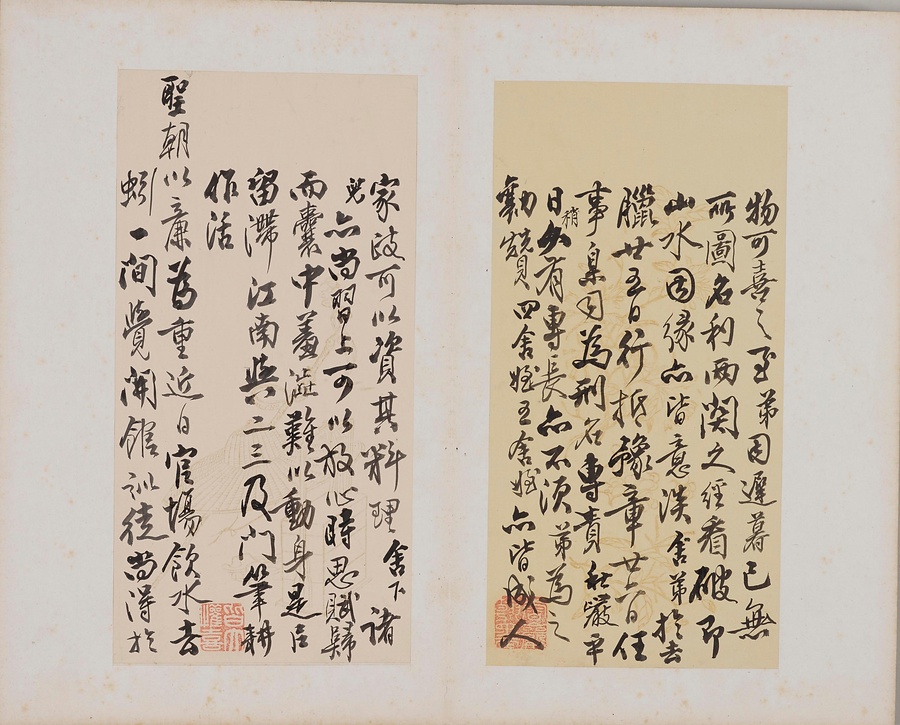 物可喜之至弟因遲暮已無
所圖名利兩關久經看破即
山水因緣亦皆意淡舍弟於去
臘廿五日行抵豫章廿六日任
事臬司為刑名專責秋嚴平
日稍久有專長亦不須弟為之
勷贊四舍姪五舍姪亦皆成人
家政可以資其料理舍下諸
兒亦尚習上可以放心時思賦歸
而囊中羞澀難以動身是以
留滯江南與二三及門筆耕
作活
聖朝以廉為重近日官場飲水去
蚓一間覺開館訓徒尚得於